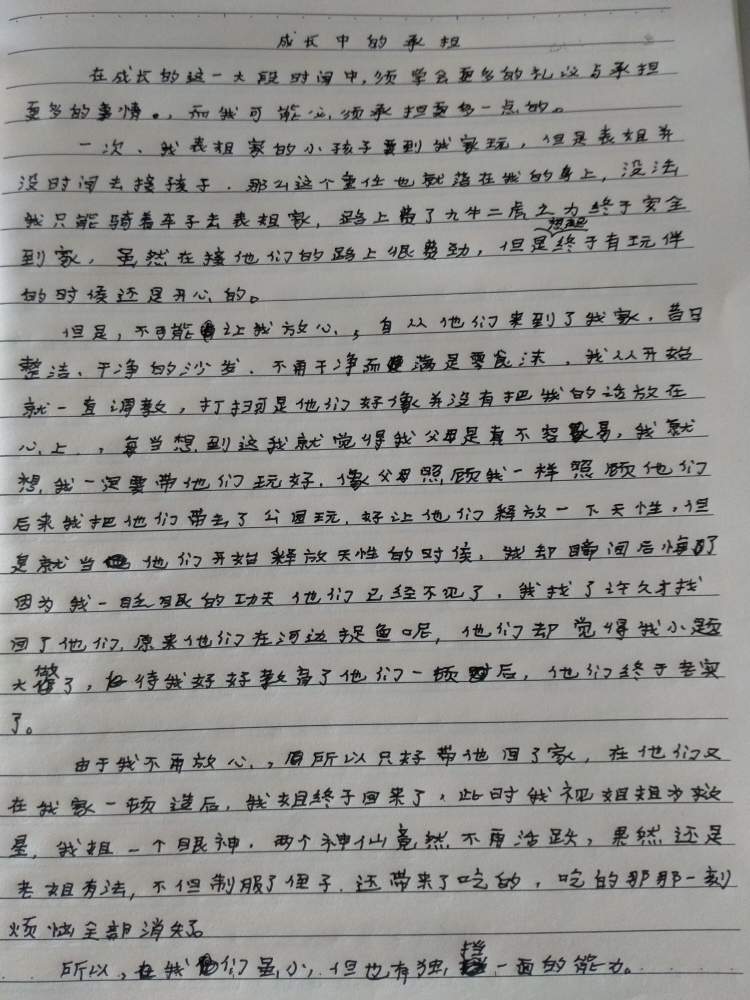 成长中的承担
在成长的这一大段时间中,须学会更多的礼议与承担
更多的事情。,而我可能必须承担更多一点的。
一次、我表姐家的小孩子要到我家玩,但是表姐并
没时间去接孩子.那么这个重任也就落在我的身上,没法
我只能骑着车子去表姐家,路上费了九牛二虎之力终于安全
到家,虽然在接他们的路上很费劲,但是想起终于有玩伴
的时候还是开心的。
但是,不可能让我放心,自从他们来到了我家.昔日
整洁、干净的沙发.不再干净而满是零食沫.我从开始
就一直调教,打扫可是他们好像并没有把我的话放在
心上.,每当想到这我就觉得我父母是真不容易,我就
想我一定要带他们玩好.像父母照顾我一样照顾他们
后来我把他们带去了公园玩,好让他们释放一下天性,但
是就当他们开始释放天性的时候,我却瞬间后悔了
因为我一眨眼的功夫他们已经不见了.我找了许久才找
回了他们,原来他们在河边捉鱼呢,他们却觉得我小题
大做了,待我好好教育了他们一顿后,他们终于老实
了。
由于我不再放心,所以只好带他回了家,在他们又
在我家一顿造后,我姐终于回来了,此时我视姐姐为救
星,我姐一个眼神.两个神仙竟然不再活跃,果然还是
老姐有法,不但制服了侄子.还带来了吃的,吃的那那一刻
烦恼全部消失了
所以,我们虽小,但也有独挡一面的能力。